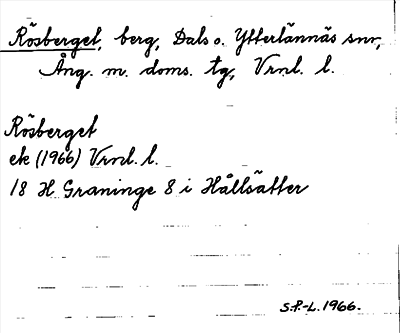 Rösberget, berg, Dals o. Ytterlännäs snr,
Ång. m. doms. tg, Vrnl. l.
Rösberget
ek (1966) Vrnl. l.
18 H Graninge 8 i Hållsätter
S.P.-L. 1966.